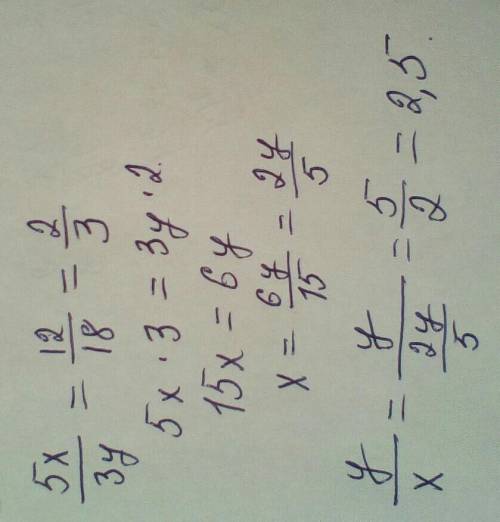 5x/3y = 12/18 = 2/3
5x · 3 = 3y · 2
15x = 6y
x = 6y/15 = 2y/5
y/x = y/(2y/5) = 5/2 = 2,5.